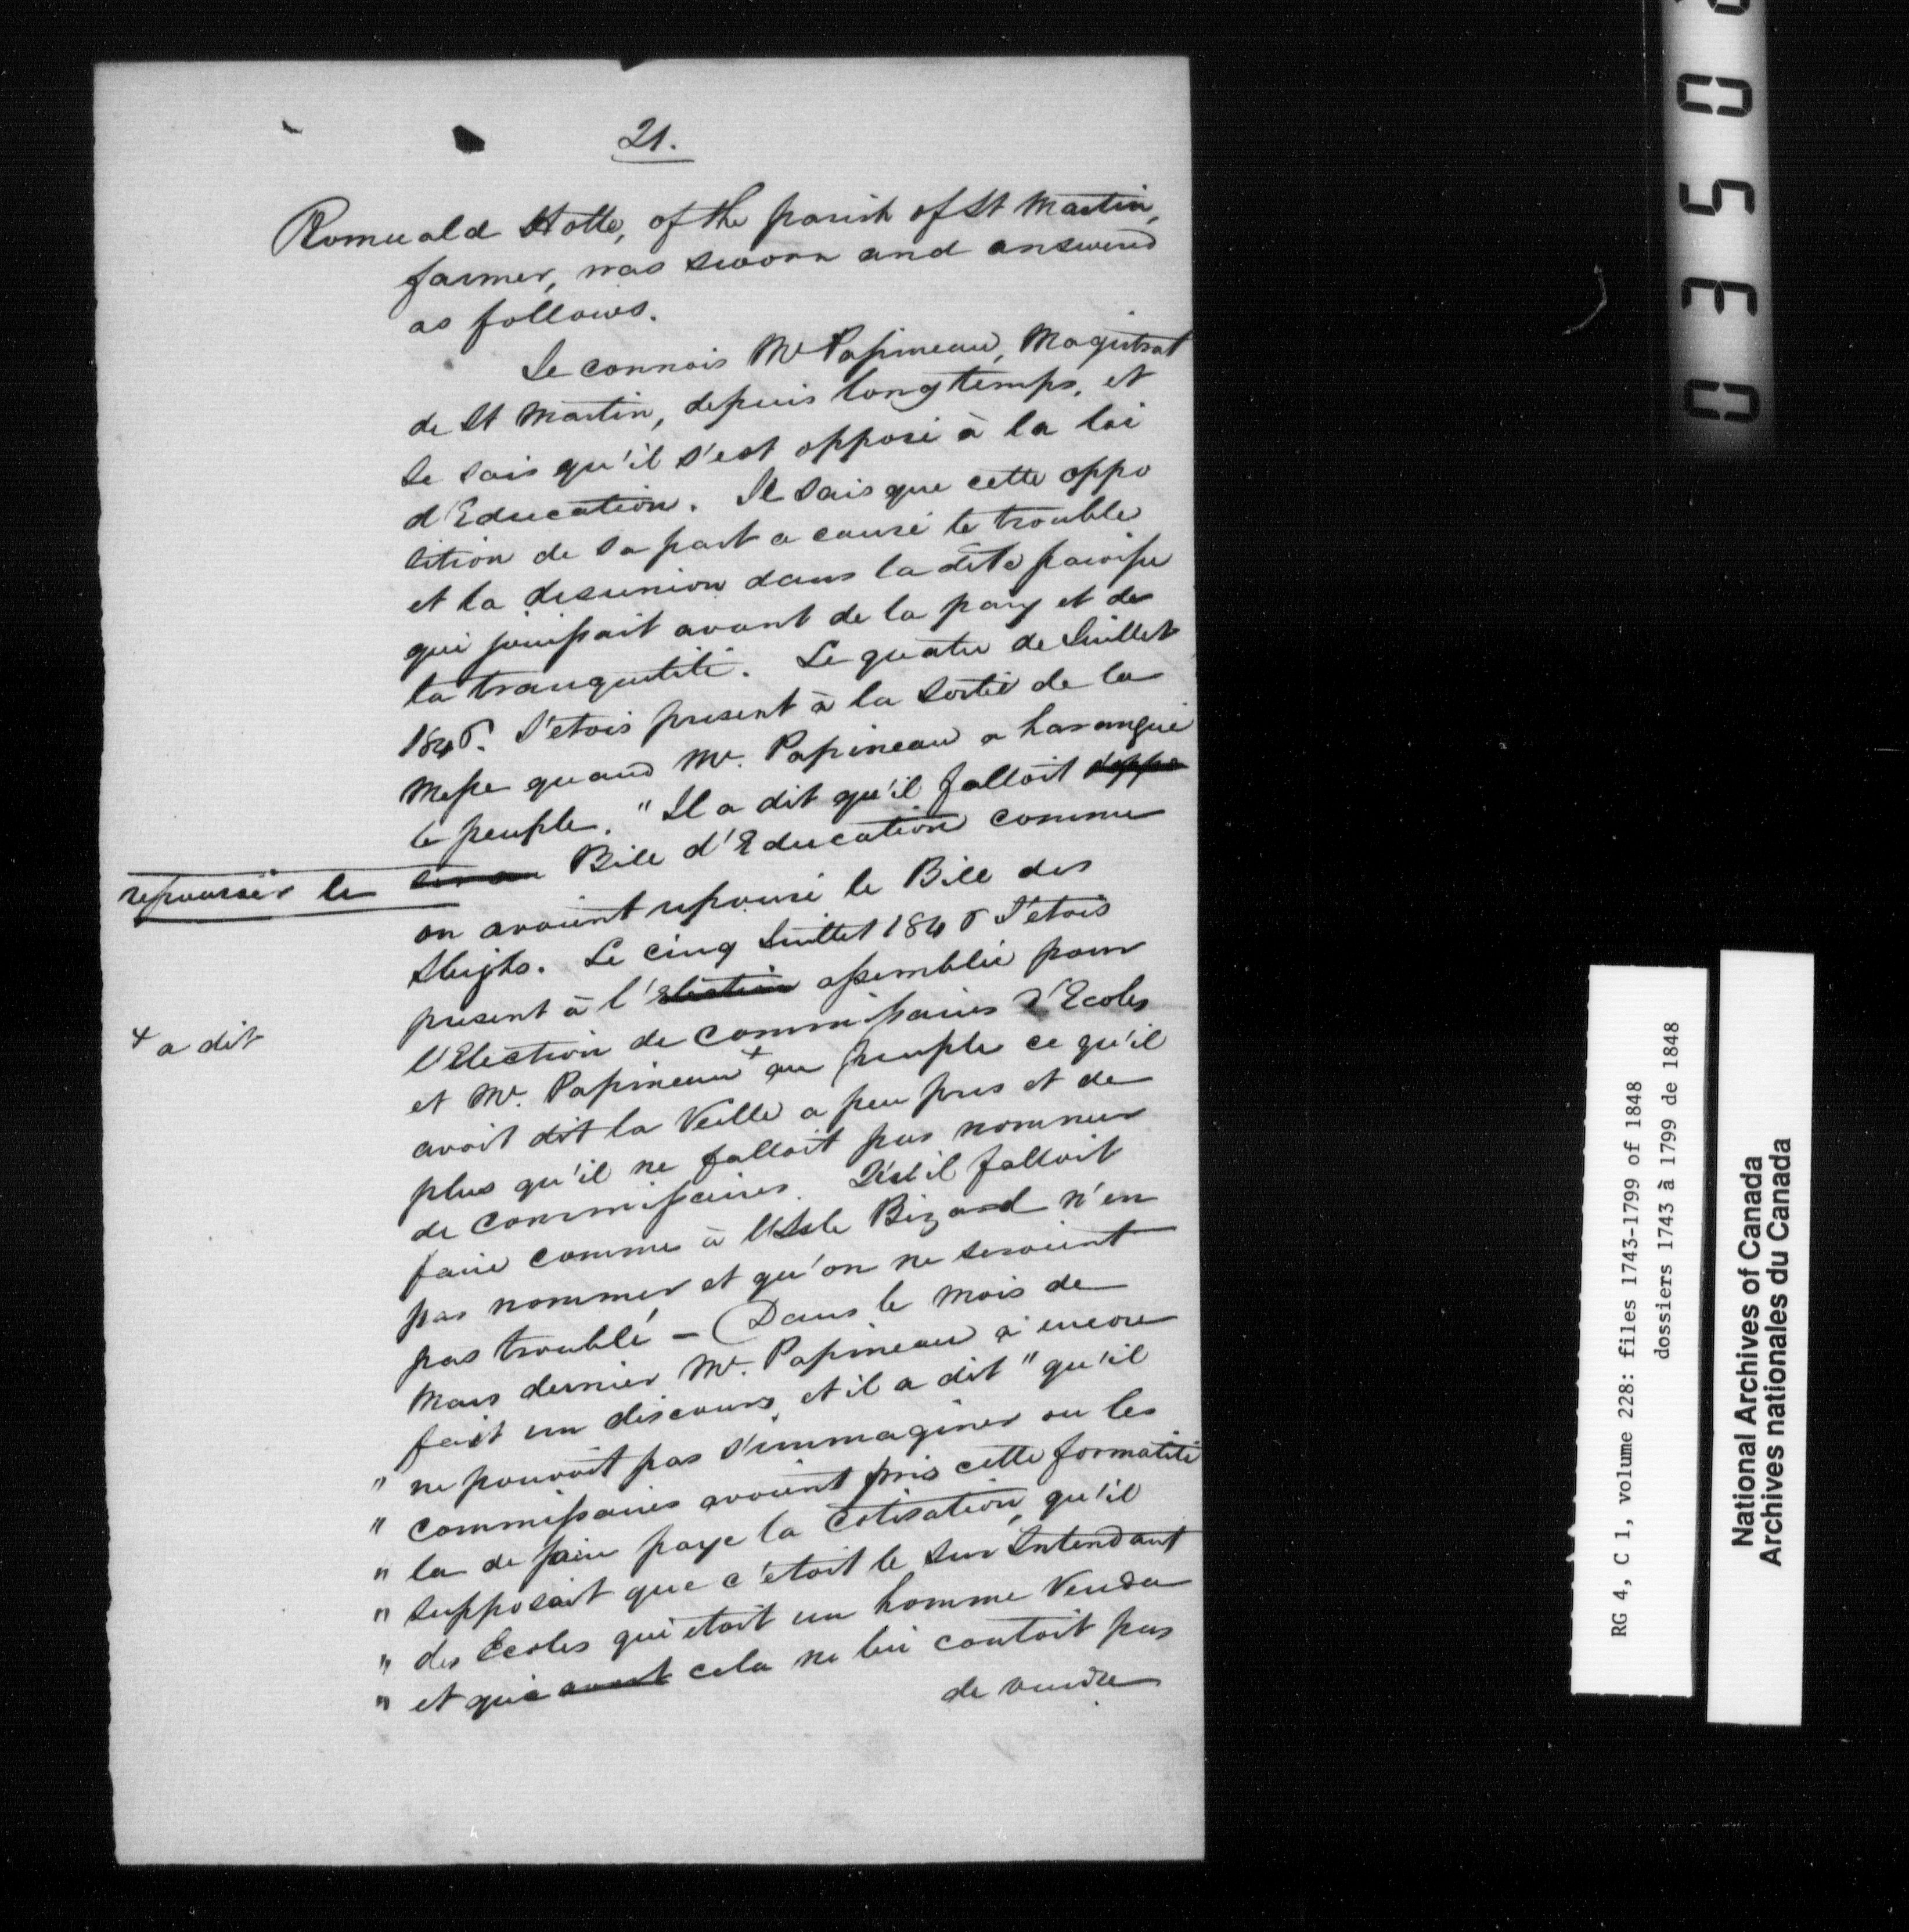 21.
Romuald Hotte, of the parish of St Martin,
farmer, was sworn and answered
as follows.
Je connois Mr Papineau, Magistrat
de St Martin, depuis longtemps, et
Je sais qu'il s'est opposé à la loi
d'Education. Je sais que cette oppo
sition de sa part a causé le trouble
et la desunion dans la dite paroisse
qui jouissait avant de la paix et de
la tranquilité. Le quatre de Juillet
1846. J'etois present à la sortie de la
Messe quand Mr. Papineau a harangué
le peuple. "Il a dit qu'il falloit
repousser le Bill d'Education comme
on avoient repoussé le Bill des
Sleighs. Le cinq Juillet 1846 J'etois
present à l'Election assemblée pour
l'Election de Commissaires d'Ecoles
+ a dit
et Mr. Papineau + au peuple ce qu'il
avoit dit la Veille a peu pres et de
plus qu'il ne falloit pas nommer
de Commissaires. Qu'il falloit
faire comme à l'Isle Bizard n'en
pas nommer et qu'on ne seroient
pas troublé — Dans le mois de
Mars dernier Mr. Papineau a encore
fait un discours, et il a dit "qu'il
" ne pouvoit pas s'immaginer ou les
" Commissaires avoient pris cette formalité
" la de faire paye la Cotisation, qu'il
" supposait que c'étoit le Sur Intendant
" des Ecoles qui etoit un homme Vendu
" et que avant cela ne lui coutoit pas
de vendre
0350
RG 4, C 1, volume 228: files 1743-1799 of 1848
dossiers 1743 à 1799 de 1848
National Archives of Canada
Archives nationales du Canada